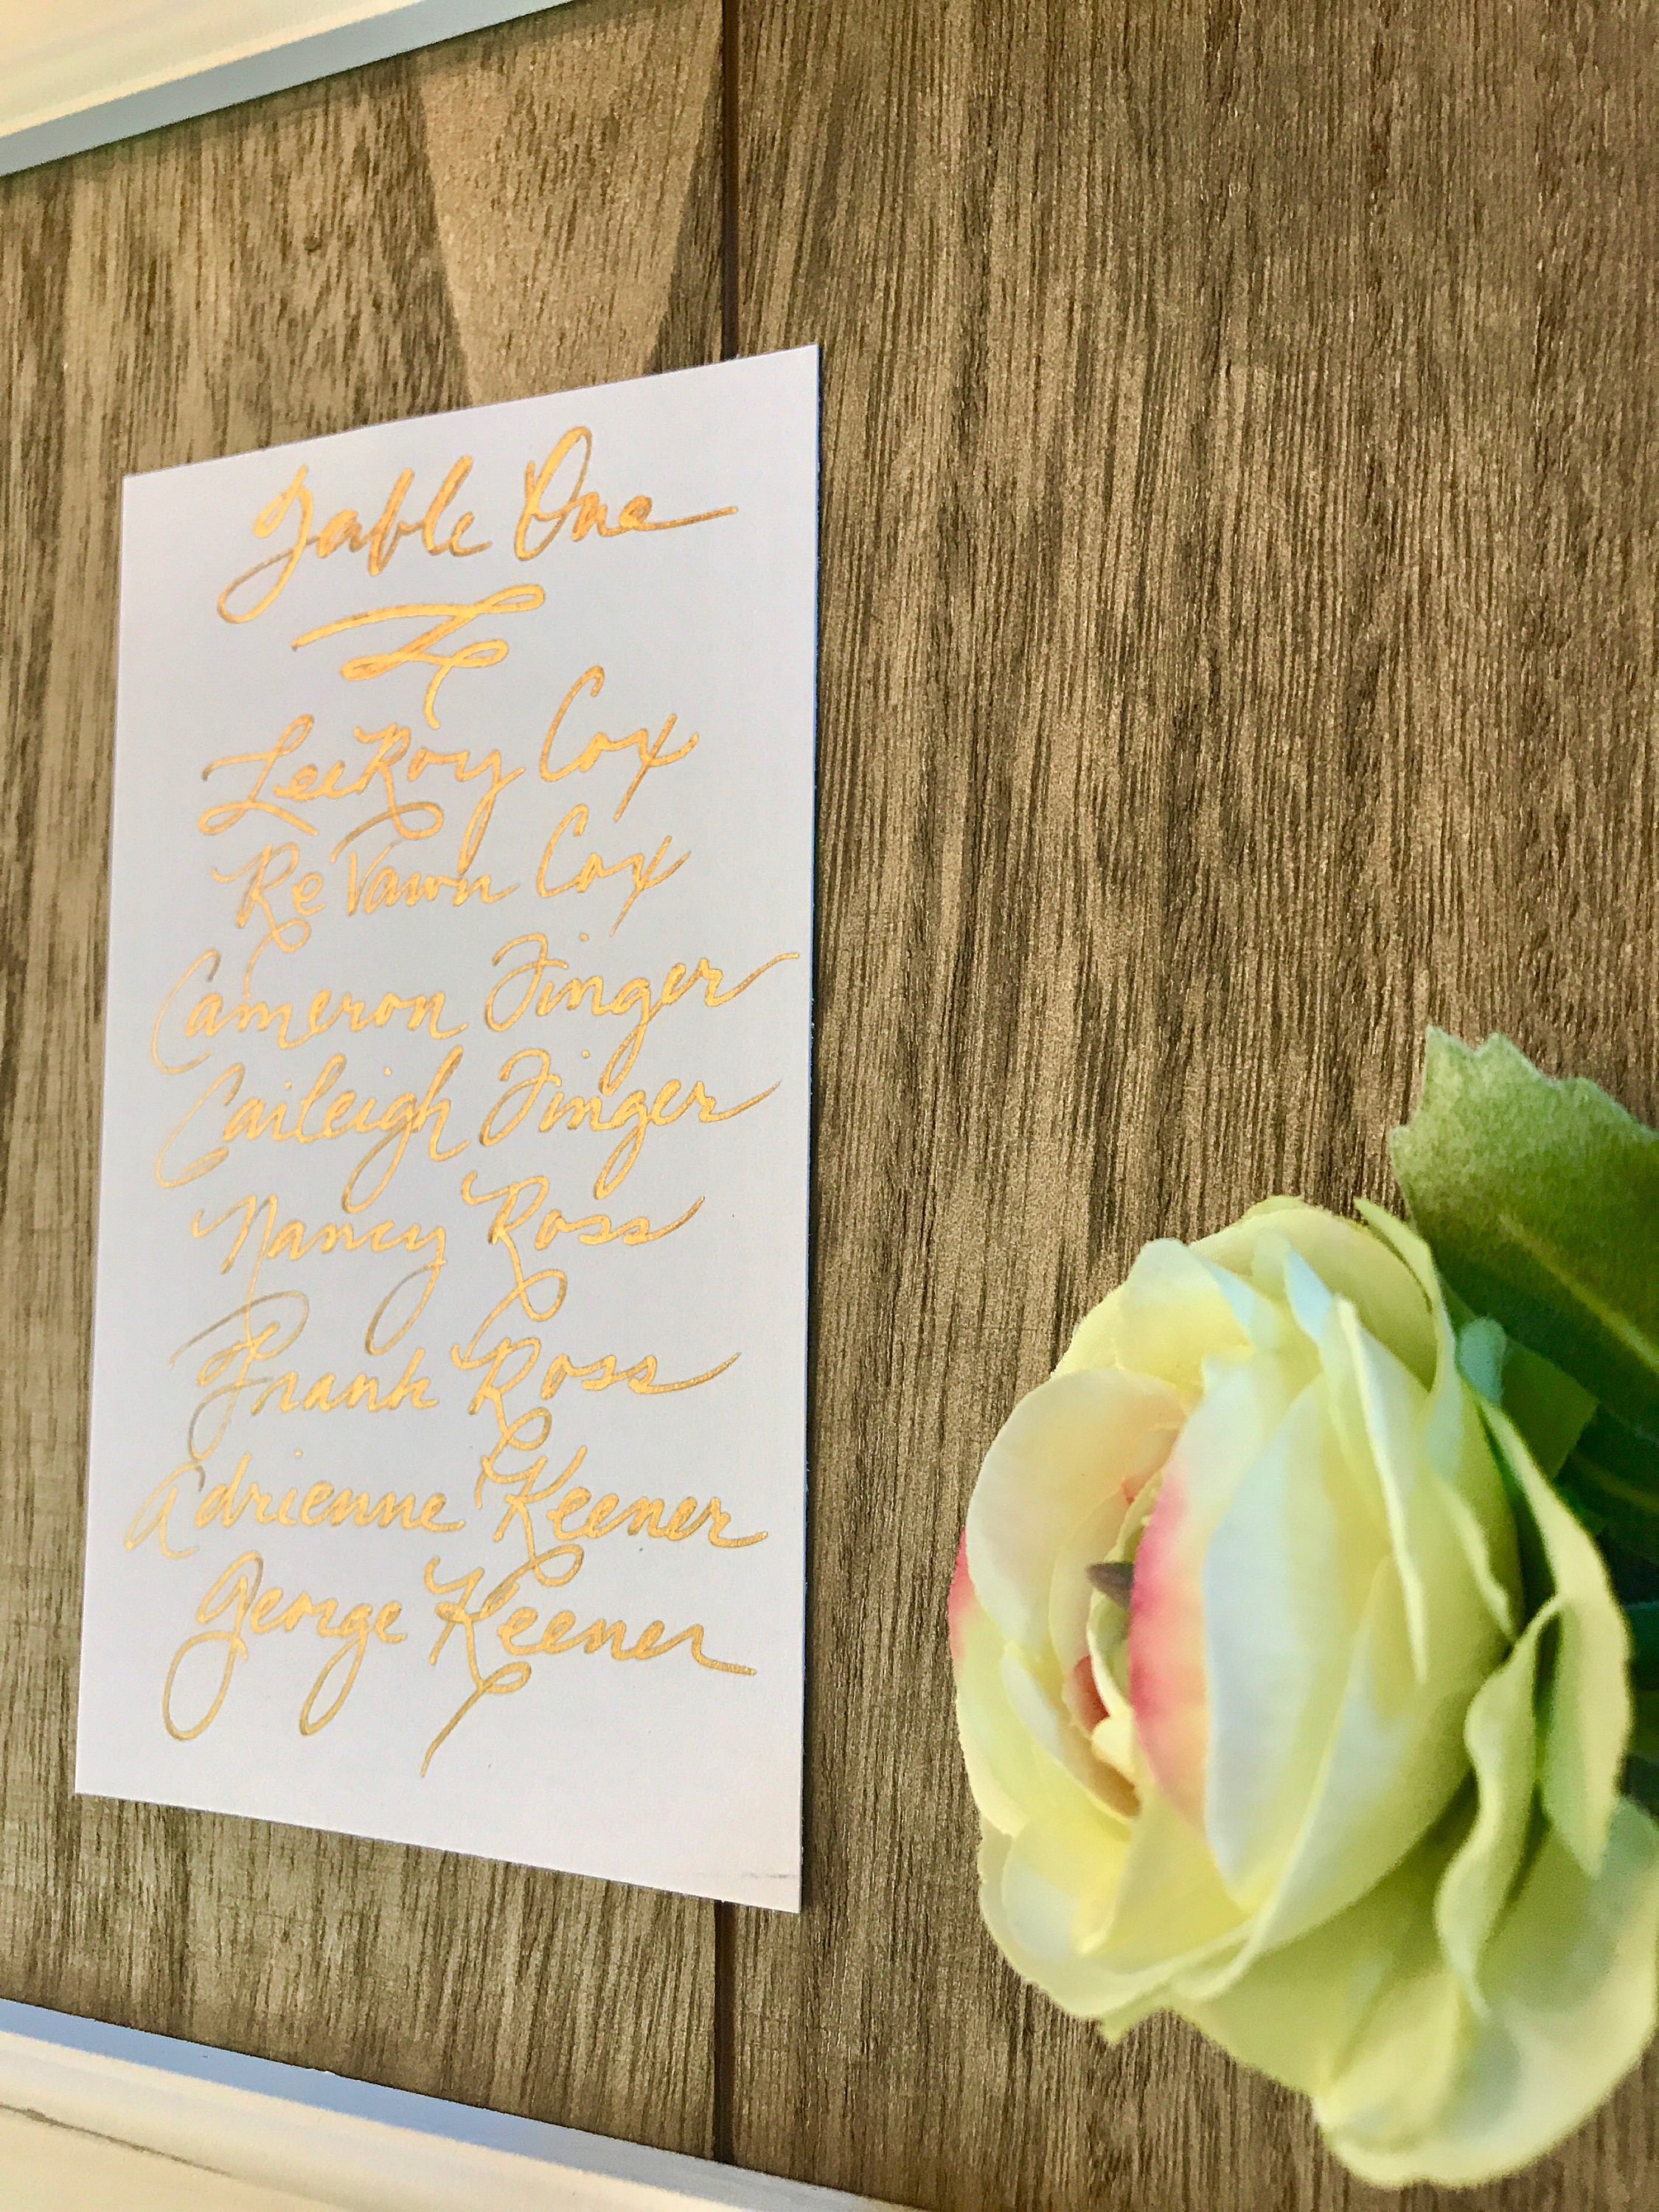 Table One
LeeRoy Cox
ReVawn Cox
Cameron Finger
Caileigh Finger
Nancy Ross
Frank Ross
Adrienne Keener
George Keener